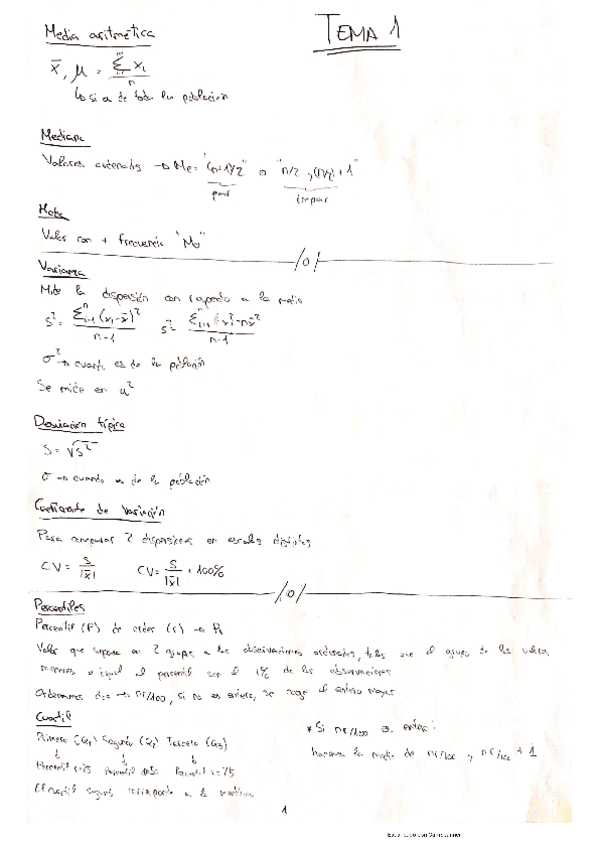 TEMA 1
Media aritmética
x̄, μ = Σxi / n
↳ si es de toda la población
Mediana
Valores ordenados → Me = "(n+1)/2" o "n/2 y (n/2)+1"
par impar
Moda
Valor con + frecuencia "Mo"
/0/
Varianza
Mide la dispersión con respecto a la media
s² = Σⁿᵢ₌₁(xi - x̄)² / n-1 s² = Σⁿᵢ₌₁ xi² - nx̄² / n-1
σ² → cuando es de la población
Se mide en u²
Desviación típica
S = √s²
σ → cuando es de la población
Coeficiente de Variación
Para comparar 2 dispersiones en escalas distintas
CV = S / |x̄| CV = S / |x̄| · 100%
/0/
Percentiles
Percentil (P) de orden (r) → Pr
Valor que separa en 2 grupos a las observaciones ordenadas, tales que el grupo de los valores
menores o igual al percentil son el r% de las observaciones
Ordenamos → nr/100, si no es entero, se coge el entero mayor
Cuartil
Primero (Q1) Segundo (Q2) Tercero (Q3)
Percentil r=25 Percentil Percentil r=75
El cuartil segundo corresponde a la mediana
* Si nr/100 es entero:
hacemos la media de nr/100 y nr/100 + 1
1